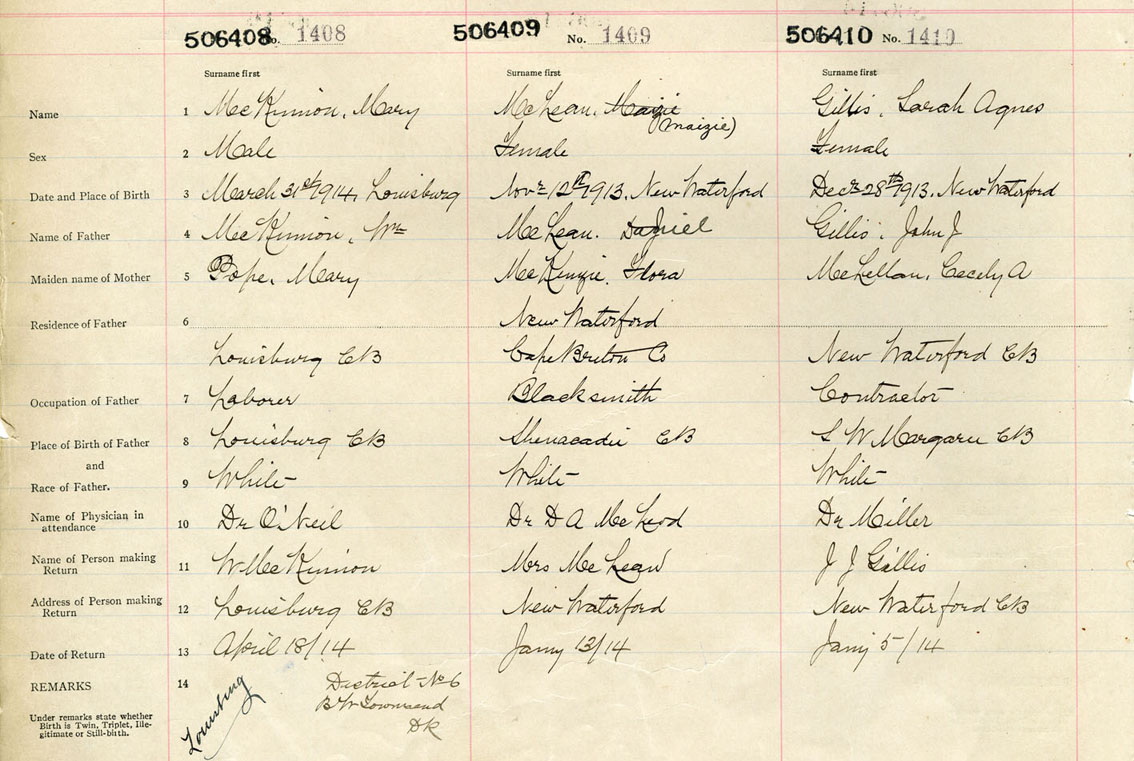 506408 No. 1408 506409 No. 1409 506410 No. 1410
Surname first Surname first Surname first
Name 1 McKinnon, Mary McLean, Maizie Gillis, Sarah Agnes
(Maizie)
Sex 2 Male Female Female
Date and Place of Birth 3 March 31st 1914, Louisburg Novr 12th 1913. New Waterford Decr 28th 1913. New Waterford
Name of Father 4 McKinnon, Wm McLean. Daniel Gillis, John J
Maiden name of Mother 5 Pope, Mary McKenzie. Flora McLellan, Cecely A
Residence of Father 6 New Waterford
Louisburg CB Cape Breton Co New Waterford CB
Occupation of Father 7 Laborer Blacksmith Contractor
Place of Birth of Father 8 Louisburg CB Shenacadie CB S W Margaree CB
and
Race of Father. 9 White White White
Name of Physician in attendance 10 Dr O'Neil Dr D A McLeod Dr Miller
Name of Person making Return 11 W McKinnon Mrs McLean J J Gillis
Address of Person making Return 12 Louisburg CB New Waterford New Waterford CB
Date of Return 13 April 18/14 Jany 13/14 Jany 5/14
REMARKS 14 District No 6
B W Townsend
DR
Louisburg
Under remarks state whether
Birth is Twin, Triplet, Ille-
gitimate or Still-birth.